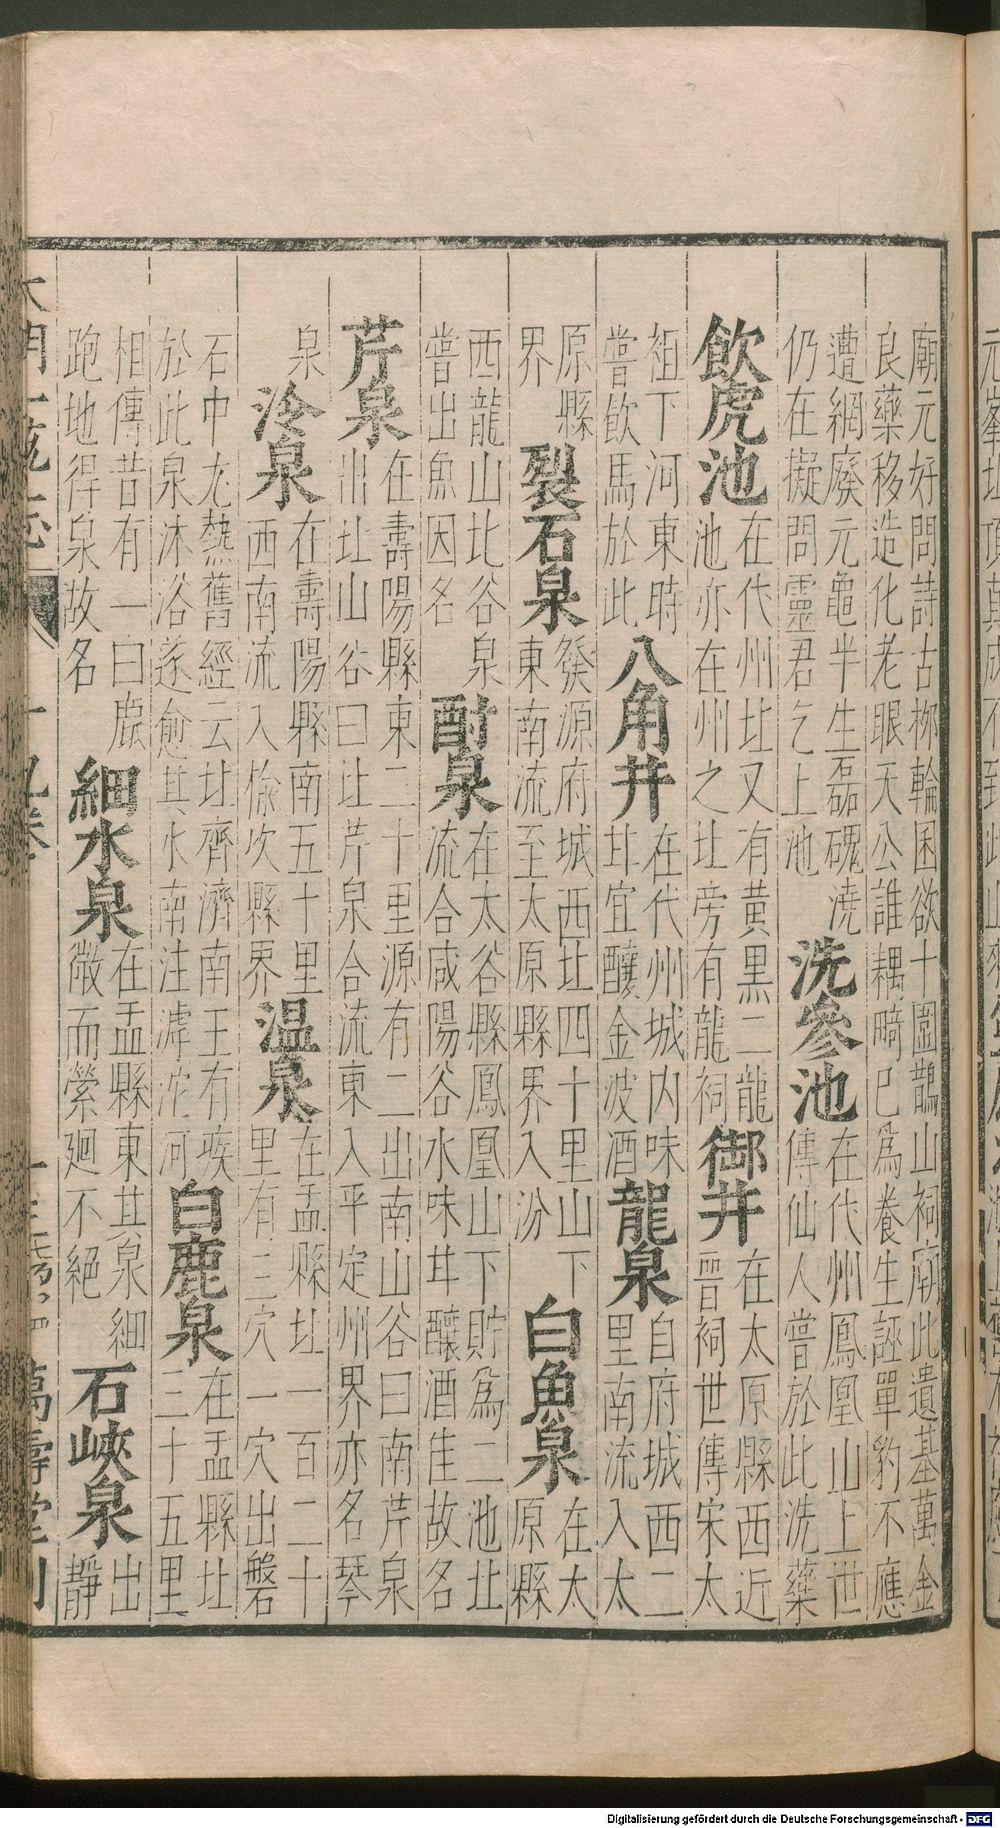 廟元好問詩古栁輪囷欲十圍鵲山祠廟此遺基萬金
良藥移造化老眼天公誰耦畸巳為養生誣單豹不應
遭網廢元龜半生磊磈澆
仍在擬問靈君乞上池
洗參池
在代州鳳凰山上世
傳仙人嘗於此洗藥
飲虎池
在代州北又有黃黒二龍
池亦在州之北旁有龍祠
御井
在太原縣西近
晋祠世傳宋太
祖下河東時
嘗飲馬於此
八角井
在代州城内味
甘宜釀金波酒
龍泉
自府城西二
里南流入太
原縣
界
裂石泉
發源府城西北四十里山下
東南流至太原縣界入汾
白魚泉
在太
原縣
西龍山北谷泉
嘗出魚因名
酎泉
在太谷縣鳳凰山下貯為二池北
流合咸陽谷水味甘釀酒佳故名
芹泉
在壽陽縣東二十里源有二出南山谷曰南芹泉
出北山谷曰北芹泉合流東入平定州界亦名琴
泉
泠泉
在壽陽縣南五十里
西南流入徐坎縣界
温泉
在盂縣北一百二十
里有三穴一穴出磐
石中尤熱舊經云北齊濟南王有疾
於此泉沐浴遂愈其水南注滹沱河
白鹿泉
在盂縣北
三十五里
相傳昔有一白鹿
跑地得泉故名
細水泉
在盂縣東其泉細
微而縈廻不絕
石峽泉
出
靜
萬壽堂刊
Digitalisierung gefördert durch die Deutsche Forschungsgemeinschaft - DFG